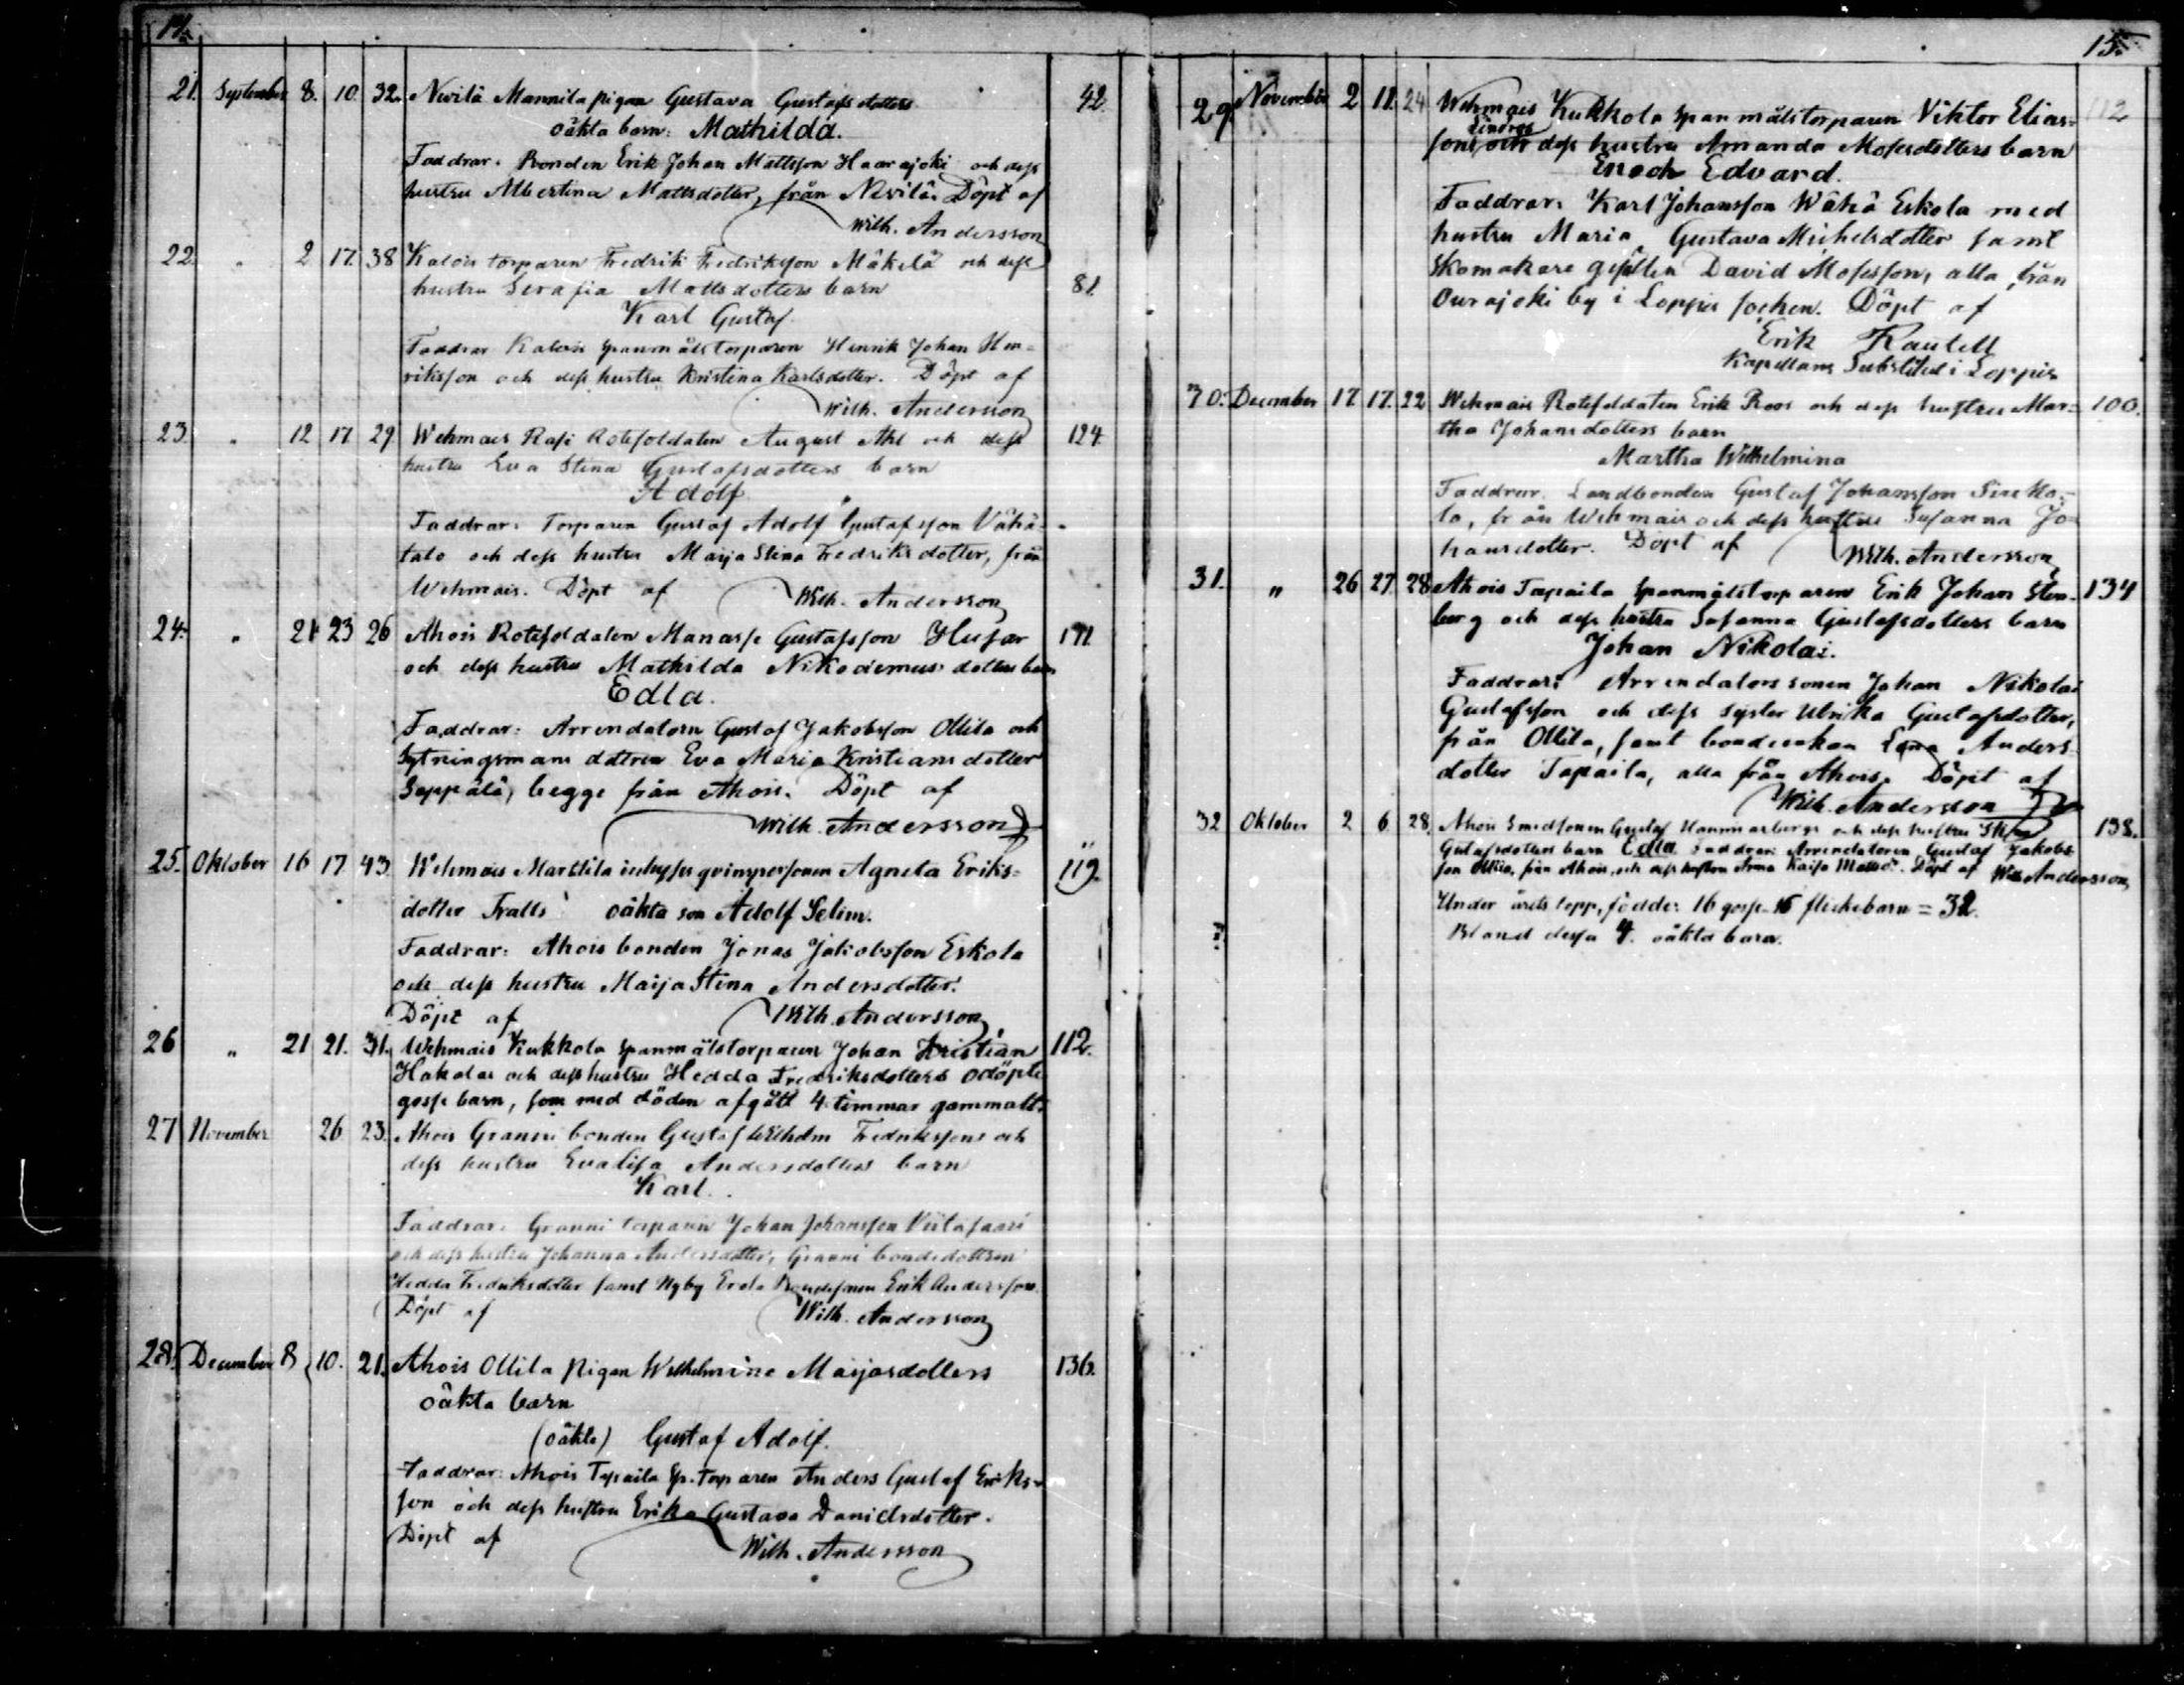 14.
21. September 8. 10. 32. Nevilä Mannila pigan Gustava Gustafsdotters 42.
oäkta barn: Mathilda.
Faddrar: Bonden Erik Johan Mattsson Haarajoki och dess
hustru Albertina Mattsdotter, från Nevilä. Döpt af
Wilh. Andersson
22. " 2 17. 38 Kalois torparen Fredrik Fredriksson Mäkelä och dess
hustru Serafia Mattsdotters barn 81.
Karl Gustaf
Faddrar Kalois spanmålstorparen Henrik Johan Hen-
riksson och dess hustru Kristina Karlsdotter. Döpt af
Wilh. Andersson
23. " 12 17 29 Wehmais Rasi Rotesoldaten August Ahl och dess 124.
hustru Eva Stina Gustafsdotters barn
Adolf
Faddrar: Torparen Gustaf Adolf Gustafsson Vähä-
talo och dess hustru Maija Stina Fredriksdotter, från
Wehmais. Döpt af Wilh. Andersson
24. " 21 23 26 Ahois Rotesoldaten Manasse Gustafsson Husar 171.
och dess hustru Mathilda Nikodemusdotters barn
Edla.
Faddrar: Arrendatorn Gustaf Jakobsson Ollila och
Sytningsmans dottren Eva Maria Kristiansdotter
Seppälä, begge från Ahois. Döpt af
Wilh. Andersson
25. Oktober 16 17 43. Wehmais Marttila inhyses qvinspersonen Agneta Eriks- 119.
dotter Tralls oäkta son Adolf Selim.
Faddrar: Ahois bonden Jonas Jakobsson Eskola
och dess hustru Maija Stina Andersdotter.
Döpt af Wilh. Andersson
26 " 21 21. 31. Wehmais Kukkola spanmålstorparen Johan Kristian 112.
Hakolas och dess hustru Hedda Fredriksdotters odöpte
gosse barn, som med döden afgått 4 timmar gammalt.
27 November 26 23. Ahois Granni bonden Gustaf Wilhelm Fredrikssons och
dess hustru Evalisa Andersdotters barn
Karl.
Faddrar: Granni torparen Johan Johansson Viitasaari
och dess hustru Johanna Andersdotter, Granni bondedottren
Hedda Fredriksdotter samt Nyby Erola Bondesonen Erik Andersson.
Döpt af Wilh. Andersson
28. December 8 10. 21. Ahois Ollila Pigan Wilhelmina Maijasdotters 136.
oäkta barn
(oäkta) Gustaf Adolf.
Faddrar: Ahois Tapaila Sp. Torparen Anders Gustaf Eriks-
son och dess hustru Erika Gustava Danielsdotter.
Döpt af Wilh. Andersson
15.
29 November 2 11. 24 Wehmais Kukkola spanmålstorparen Viktor Elias- 112
sons och dess hustru Amanda Mosesdotters barn
Enoch Edvard.
Faddrar: Karl Johansson Wähä Eskola med
hustru Maria, Gustava Michelsdotter samt
Skomakare gesällen David Mosesson, alla från
Ourajoki by i Loppis socken. Döpt af
Erik Rautell
Kapellans Substitut i Loppis
30. December 17. 17. 22 Wehmais Rotesoldaten Erik Roos och dess hustru Mar- 100.
tha Johansdotters barn
Martha Wilhelmina
Faddrar. Landbonden Gustaf Johansson Sirkko-
la, från Wehmais och dess hustru Susanna Jo-
hansdotter. Döpt af Wilh. Andersson
31. " 26 27. 28 Ahois Tapaila Spanmålstorparen Erik Johan Sten- 134
berg och dess hustru Susanna Gustafsdotters barn
Johan Nikolai.
Faddrar: Arrendators sonen Johan Nikolai
Gustafsson och dess syster Ulrika Gustafsdotter,
från Ollila, samt bondeenkan Anders-
dotter Tapaila, alla från Ahois. Döpt af
Wilh. Andersson
32 Oktober 2 6. 28. Ahois Smedsonen Gustaf Hammarbergs och dess hustru 138.
Gustafsdotters barn Edla Faddrar: Arrendatoren Gustaf Jakobs-
son Ollila, från Ahois, och dess hustru Anna Kaisa Mattsd:r. Döpt af Wilh. Andersson
Under årets lopp, födde: 16 gosse- 16 flickebarn = 32.
Bland dessa 4. oäkta barn.